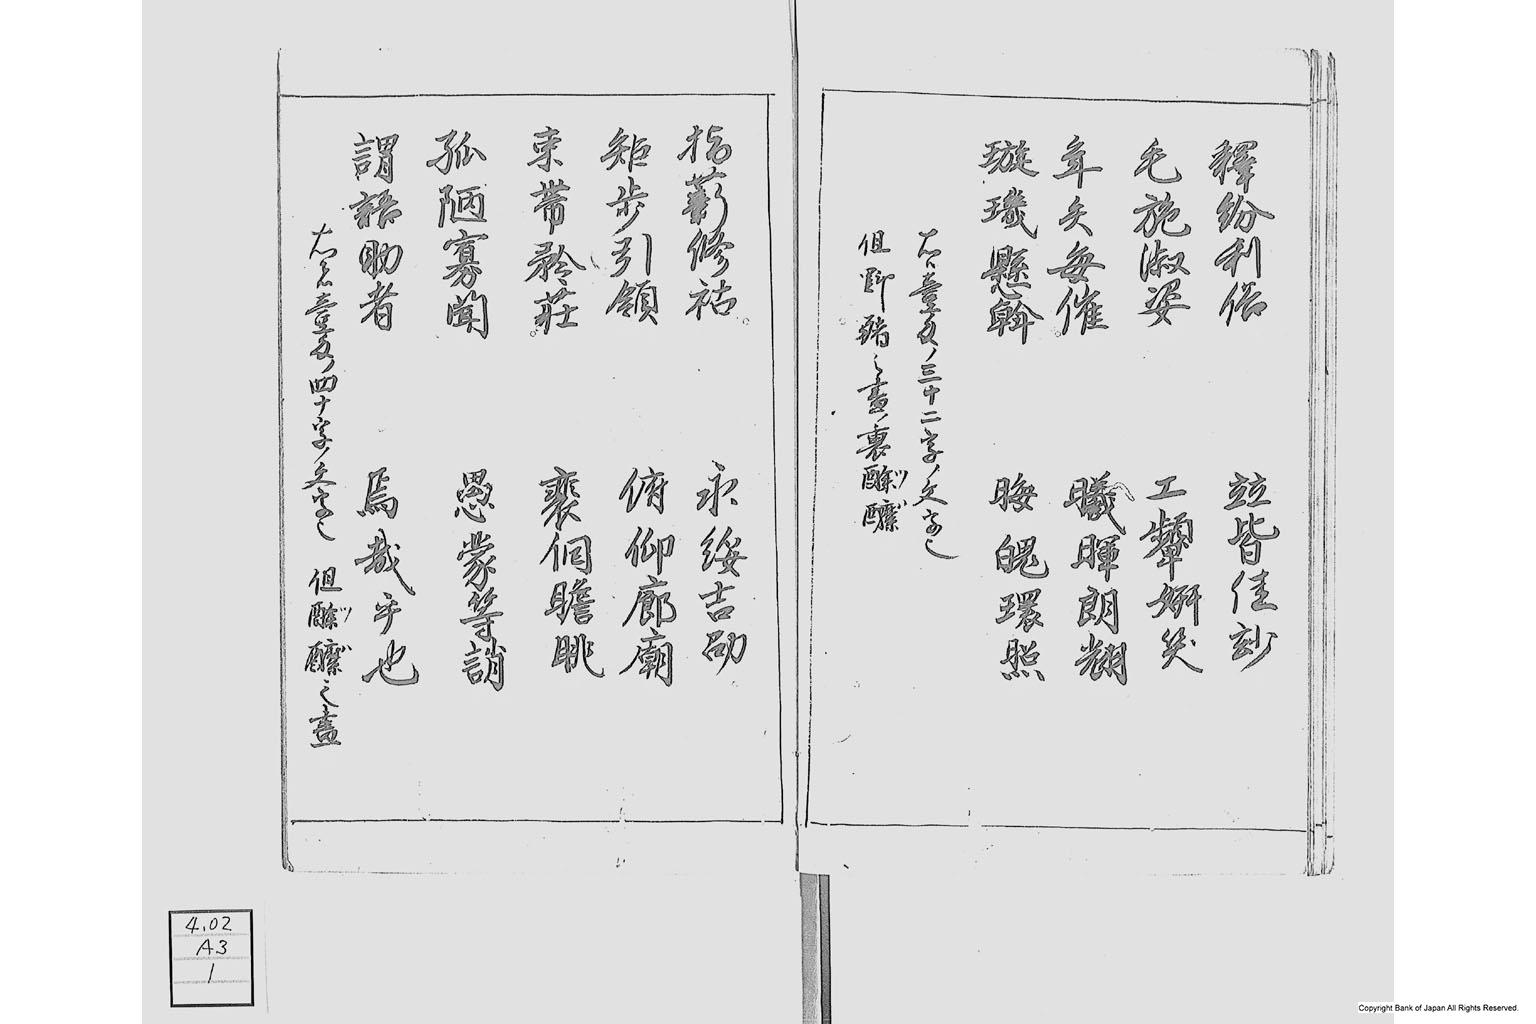 釋紛利俗　竝皆佳玅
毛施淑姿　工顰姸笑
年矢每催　曦暉朗耀
璇璣懸斡　晦魄環照
三十二字ノ文字
但
指薪修祜　永綏吉劭
矩步引領　俯仰廊廟
束帶矜莊　裵佪瞻眺
孤陋寡聞　愚蒙等誚
謂語助者　焉哉乎也
四十字ノ文字
4.02
A3
1
Copyright Bank of Japan All Rights Reserved.